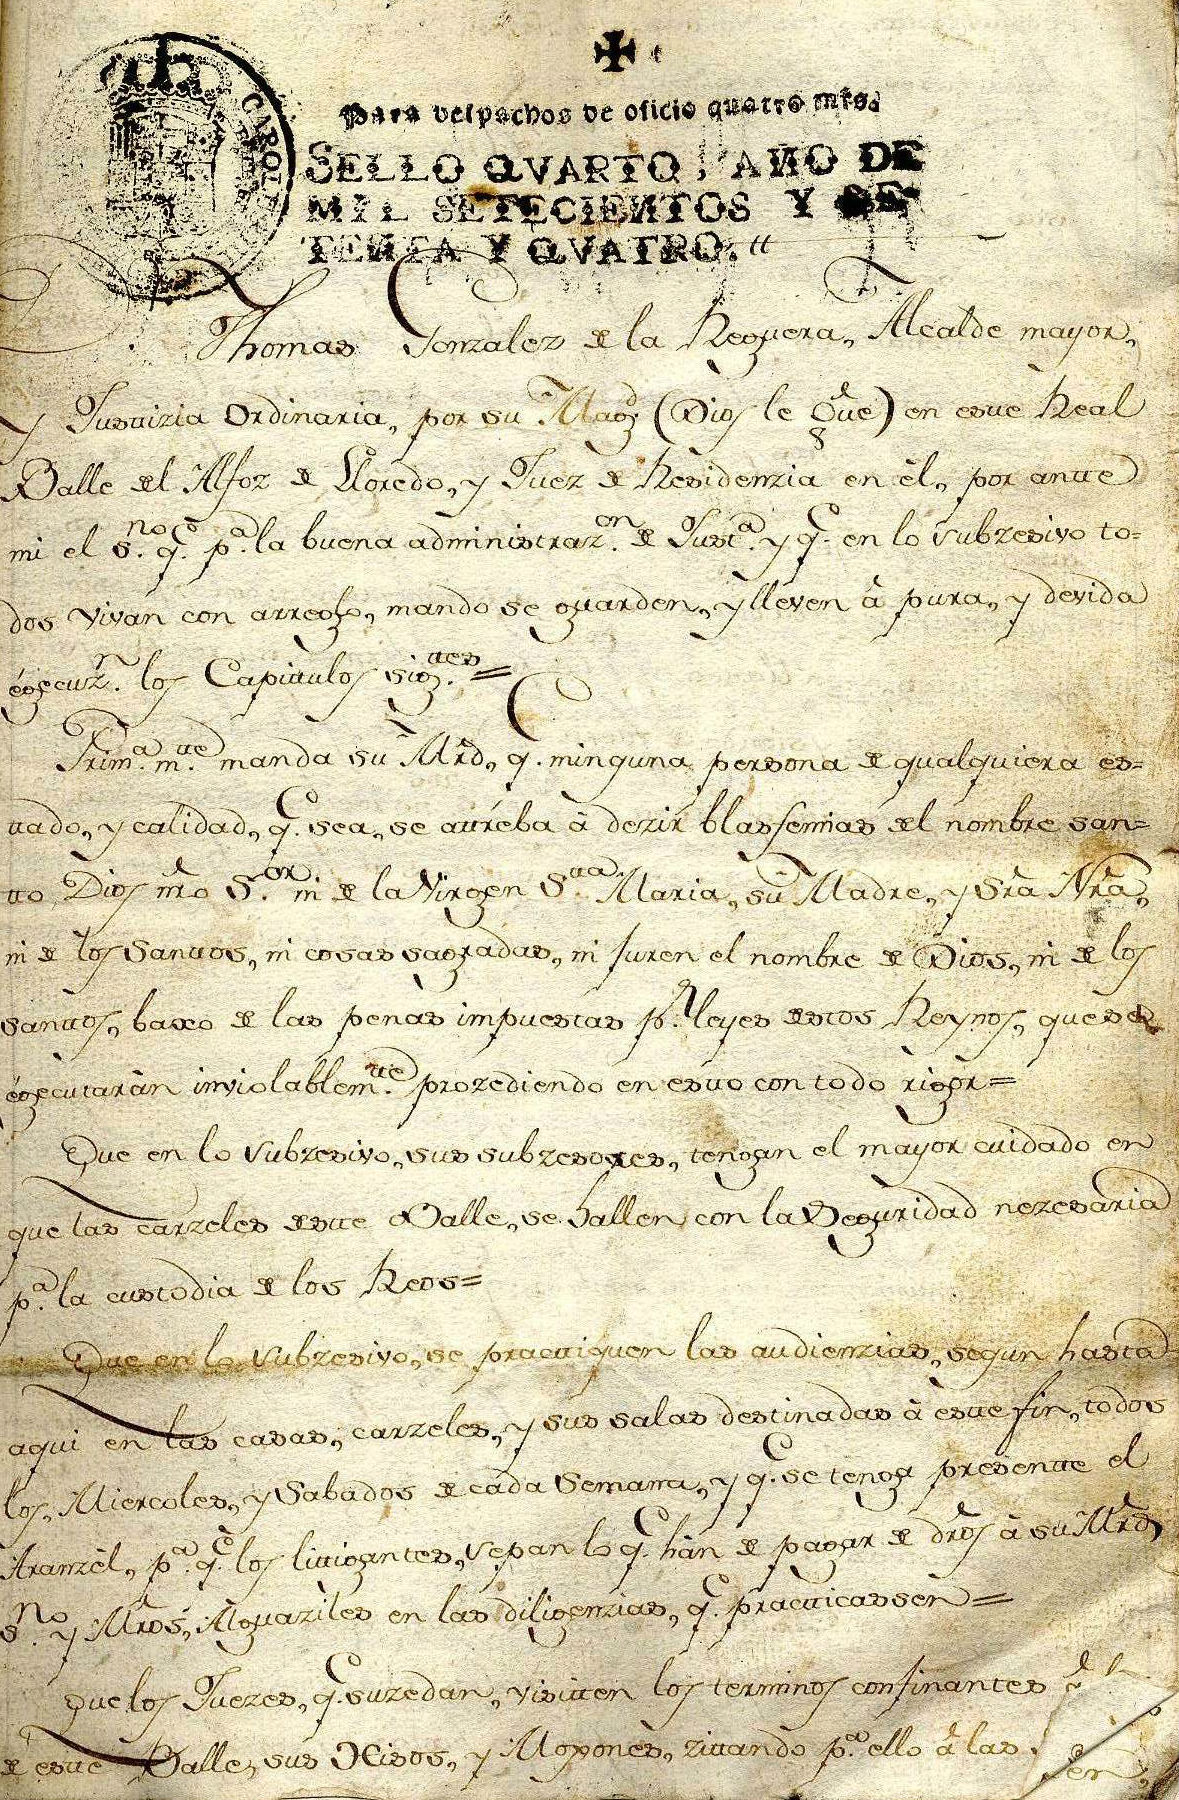 Para despachos de oficio quatro mrs.
SELLO QVARTO, AÑO DE
MIL SETECIENTOS Y SE
TENTA Y QVATRO.
Thomas Gonzalez de la Reguera, Alcalde mayor,
y Justizia Ordinaria, por su Magd (Dios le gue) en este Real
Balle del Alfoz de Lloredo, y Juez de Residenzia en èl, por ante
mi el s.no q.e p.a la buena administraz.on de Just.a y q.e en lo subzesivo to=
dos vivan con arreglo, mando se guarden, y lleven à pura, y devida
égecuz.n los Capitulos sig.tes=
Prim.a m.te manda su Mrd, q. ninguna persona de qualquiera es=
tado, y calidad, q.e sea, se atréba à dezir blasfemias del nombre san=
to Dios nro S.or ni de la Virgen S.ta Maria, su Madre, y Sra Nra,
ni de los Santos, ni cosas sagradas, ni juren el nombre de Dios, ni de los
santos, baxo de las penas impuestas p.r leyes destos Reynos, que se
égecutaràn inviolablem.te prozediendo en esto con todo rigor=
Que en lo subzesivo, sus subzesores, tengan el mayor cuidado en
que las carzeles deste Balle, se hallen con la seguridad nezesaria
p.a la custodia de los Reos=
Que en lo subzesivo, se practiquen las audienzias, segun hasta
aqui en las casas, carzeles, y sus salas destinadas à este fin, todos
los Miercoles, y Sabados de cada Semana, y q.e se tenga presente el
Aranzèl, p.a q.e los litigantes, sepan lo q.e hàn de pagar de dros à su Mrd,
s.no y Mros, Alguaziles en las diligenzias, q.e practicassen=
Que los Juezes, q.e suzedan, visiten los terminos confinantes
de este Balle, sus Xisos, y Moxones, zitando p.a ello à las